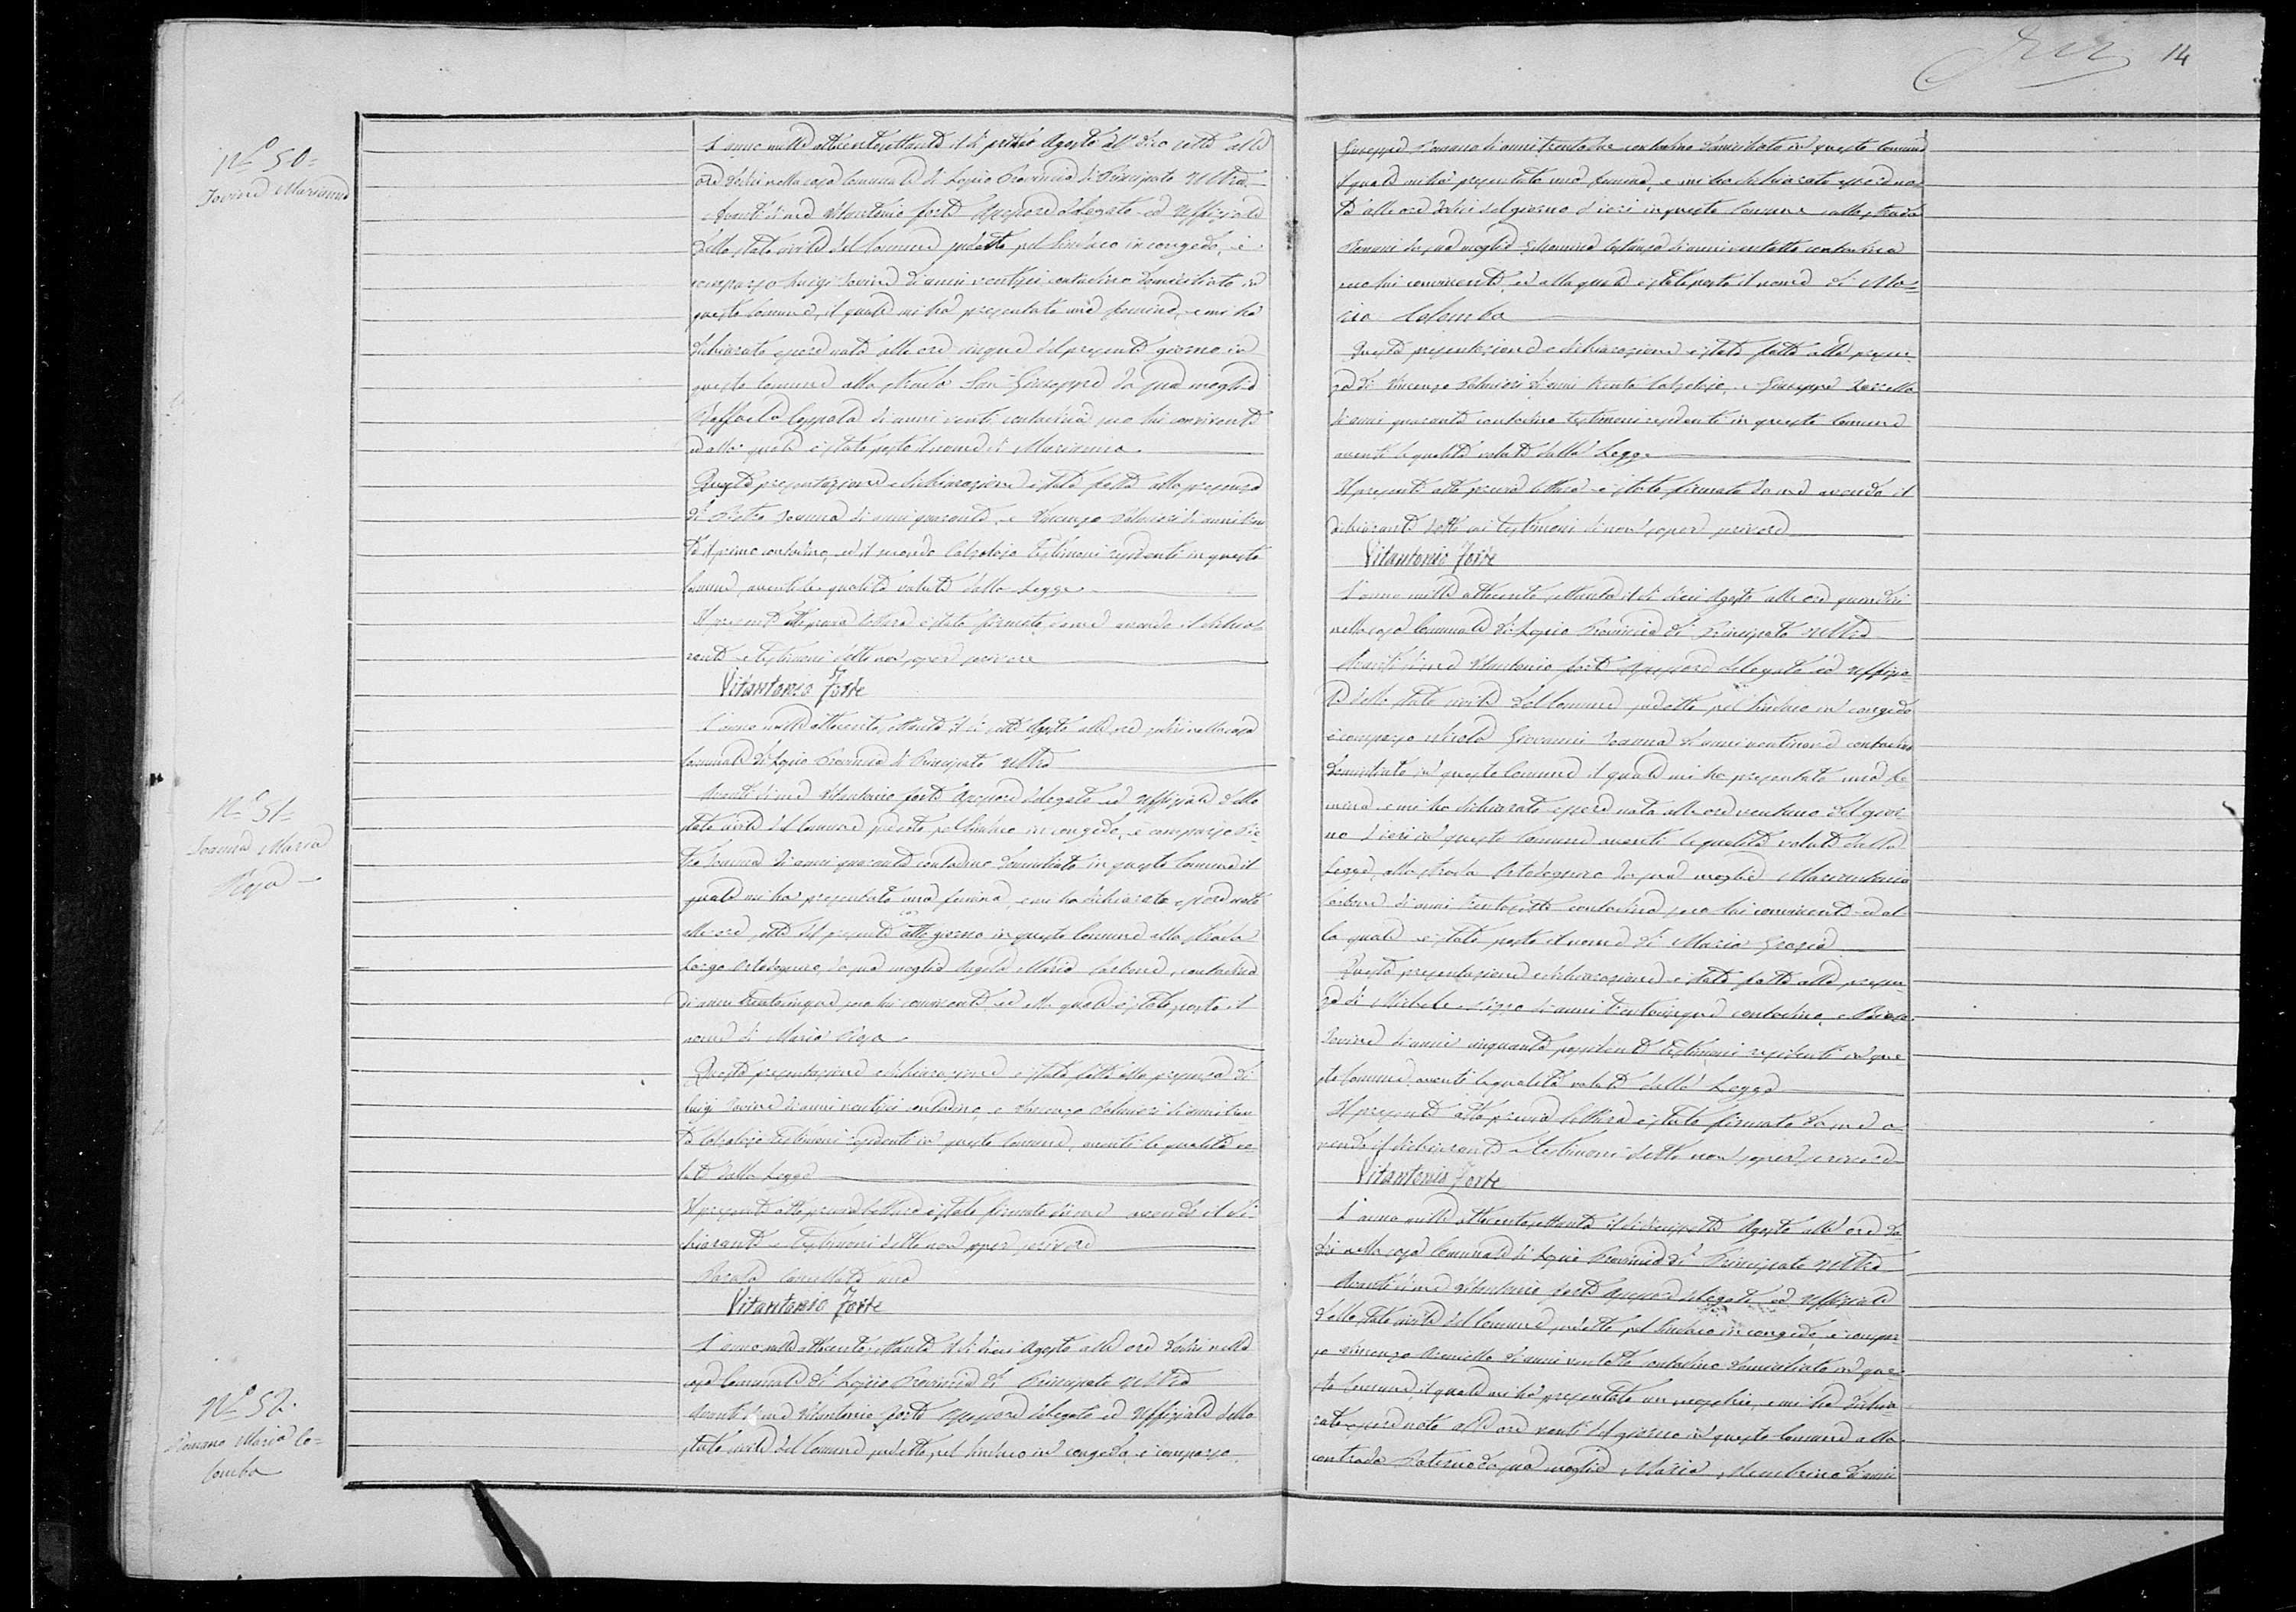 N.o 50=
Iovine Marianna
L'anno mille ottocento settanta il dì primo Agosto alle ore
nella casa Comunale di Lapio Provincia di Principato Ultra
Avanti di me Vitantonio Forte Assessore delegato ed Uffiziale
dello stato civile del Comune suddetto pel Sindaco in congedo, è
comparso Luigi Iovine di anni ventisei contadino domiciliato in
questo Comune, il quale mi ha presentato una femina, e mi ha
dichiarato essere nata alle ore cinque del presente giorno in
questo Comune alla strada San Giuseppe da sua moglie
Raffaela Coppola di anni venti contadina seco lui convivente
ed alla quale è stato posto il nome di Marianna
Questa presentazione e dichiarazione è stata fatta alla presenza
di Pietro Ioanna di anni quaranta, e Vincenzo Palmieri di anni tren
ta il primo contadino, ed il secondo Calzolajo Testimoni residenti in questo
Comune, aventi le qualità volute dalla Legge
Il presente atto previa lettura è stato firmato da me avendo il dichia=
rante e Testimoni detto non saper scrivere
Vitantonio Forte
N.o 51=
Ioanna Maria
Rosa
L'anno mille ottocento settanta il dì sette Agosto alle ore nella casa
Comunale di Lapio Provincia di Principato Ultra
Avanti di me Vitantonio Forte Assessore delegato ed Uffiziale dello
stato civile del Comune suddetto pel Sindaco in congedo, è comparso Pie
tro Ioanna di anni quaranta contadino domiciliato in questo Comune il
quale mi ha presentato una femina, e mi ha dichiarato essere nata
alle ore sette del presente giorno in questo Comune alla strada
Largo da sua moglie Angela Maria Carbone, contadina
di anni trentacinque seco lui convivente, ed alla quale è stato posto il
nome di Maria Rosa
Questa presentazione e dichiarazione è stata fatta alla presenza di
Luigi Iovine di anni ventisei contadino, e Vincenzo Palmieri di anni tren
ta Calzolajo Testimoni residenti in questo Comune, aventi le qualità vo=
lute dalla Legge
Il presente atto previa lettura è stato firmato da me avendo il di=
chiarante e Testimoni detto non saper scrivere
Parola cancellata una
Vitantonio Forte
N.o 52.
Romano Maria Co=
lomba
L'anno mille ottocento settanta il dì dieci Agosto alle ore nella
casa Comunale di Lapio Provincia di Principato Ultra
Avanti di me Vitantonio Forte Assessore delegato ed Uffiziale dello
stato civile del Comune suddetto, pel Sindaco in congedo, è comparso
14
Giuseppe Romano di anni trentadue contadino domiciliato in questo Comune
il quale mi ha presentato una femina, e mi ha dichiarato essere na=
ta alle ore del giorno d'ieri in questo Comune alla strada
Romani da sua moglie Costanza di anni ventotto contadina
seco lui convivente, ed alla quale è stato posto il nome di Ma=
ria Colomba
Questa presentazione e dichiarazione è stata fatta alla presen=
za di Vincenzo Palmieri di anni trenta Calzolajo, e Giuseppe
di anni quaranta contadino testimoni residenti in questo Comune
aventi le qualità volute dalla Legge
Il presente atto previa lettura è stato firmato da me avendo il
dichiarante detto coi testimoni di non saper scrivere
Vitantonio Forte
L'anno mille ottocento settanta il dì dieci Agosto alle ore quindici
nella casa Comunale di Lapio Provincia di Principato Ultra
Avanti di me Vitantonio Forte Assessore delegato ed Uffizia=
le dello stato civile del Comune suddetto pel Sindaco in congedo
è comparso Nicola Giovanni Ioanna di anni ventinove contadino
domiciliato in questo Comune il quale mi ha presentato una fe
mina, e mi ha dichiarato essere nata alle ore ventuno del gior
no d'ieri in questo Comune aventi le qualità volute dalla
Legge, alla strada da sua moglie Mariantonia
Carbone di anni contadina seco lui convivente ed al
la quale è stato posto il nome di Maria Grazia
Questa presentazione e dichiarazione è stata fatta alla presen=
za di Michele di anni trentacinque contadino, e
Iovine di anni cinquanta possidente Testimoni residenti in que
sto Comune, aventi le qualità volute dalla Legge
Il presente atto previa lettura è stato firmato da me a
vendo il dichiarante e testimoni detto non saper scrivere
Vitantonio Forte
L'anno mille ottocento settanta il dì diecisette Agosto alle ore do
dici nella casa Comunale di Lapio Provincia di Principato Ultra
Avanti di me Vitantonio Forte Assessore delegato ed Uffiziale
dello stato civile del Comune suddetto pel Sindaco in congedo, è compar
so Vincenzo di anni ventotto contadino domiciliato in que=
sto Comune, il quale mi ha presentato un maschio, e mi ha dichia=
rato essere nato alle ore venti del giorno in questo Comune alla
contrada da sua moglie Maria di anni